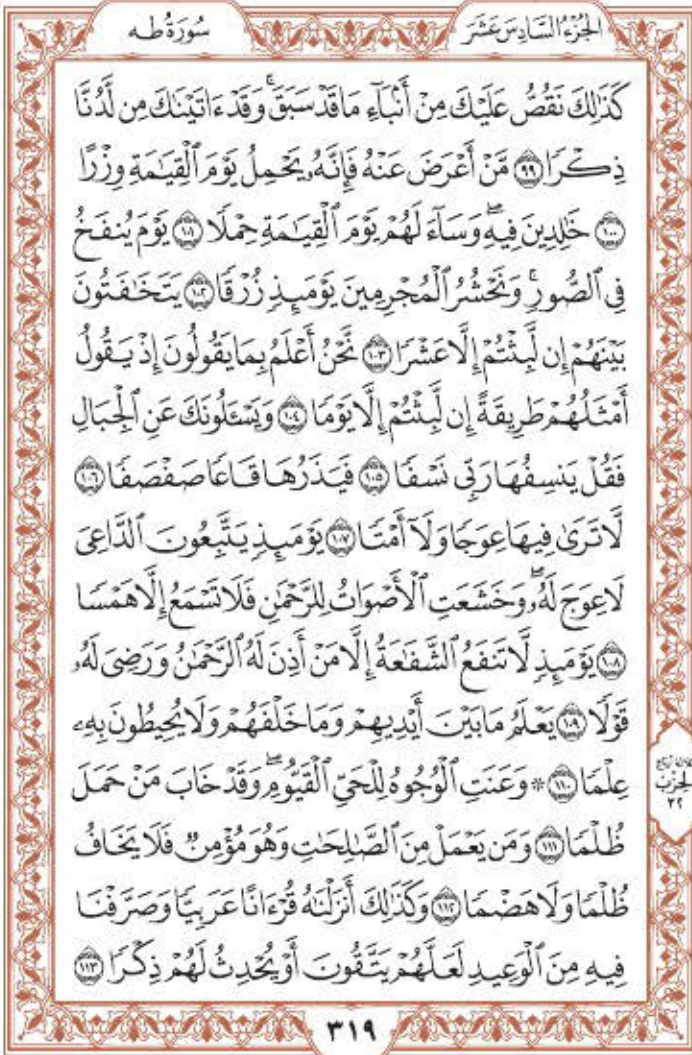 الجُزْءُ السَّادِسَ عَشَرَ سُورَةُ طه
كَذَٰلِكَ نَقُصُّ عَلَيْكَ مِنْ أَنۢبَآءِ مَا قَدْ سَبَقَۚ وَقَدْ ءَاتَيْنَٰكَ مِن لَّدُنَّا
ذِكْرًا ٩٩ مَّنْ أَعْرَضَ عَنْهُ فَإِنَّهُۥ يَحْمِلُ يَوْمَ ٱلْقِيَٰمَةِ وِزْرًا
١٠٠ خَٰلِدِينَ فِيهِۖ وَسَآءَ لَهُمْ يَوْمَ ٱلْقِيَٰمَةِ حِمْلًا ١٠١ يَوْمَ يُنفَخُ
فِى ٱلصُّورِۚ وَنَحْشُرُ ٱلْمُجْرِمِينَ يَوْمَئِذٍ زُرْقًا ١٠٢ يَتَخَٰفَتُونَ
بَيْنَهُمْ إِن لَّبِثْتُمْ إِلَّا عَشْرًا ١٠٣ نَّحْنُ أَعْلَمُ بِمَا يَقُولُونَ إِذْ يَقُولُ
أَمْثَلُهُمْ طَرِيقَةً إِن لَّبِثْتُمْ إِلَّا يَوْمًا ١٠٤ وَيَسْـَٔلُونَكَ عَنِ ٱلْجِبَالِ
فَقُلْ يَنسِفُهَا رَبِّى نَسْفًا ١٠٥ فَيَذَرُهَا قَاعًا صَفْصَفًا ١٠٦
لَّا تَرَىٰ فِيهَا عِوَجًا وَلَآ أَمْتًا ١٠٧ يَوْمَئِذٍ يَتَّبِعُونَ ٱلدَّاعِىَ
لَا عِوَجَ لَهُۥۖ وَخَشَعَتِ ٱلْأَصْوَاتُ لِلرَّحْمَٰنِ فَلَا تَسْمَعُ إِلَّا هَمْسًا
١٠٨ يَوْمَئِذٍ لَّا تَنفَعُ ٱلشَّفَٰعَةُ إِلَّا مَنْ أَذِنَ لَهُ ٱلرَّحْمَٰنُ وَرَضِىَ لَهُۥ
قَوْلًا ١٠٩ يَعْلَمُ مَا بَيْنَ أَيْدِيهِمْ وَمَا خَلْفَهُمْ وَلَا يُحِيطُونَ بِهِۦ
عِلْمًا ١١٠ ۞ وَعَنَتِ ٱلْوُجُوهُ لِلْحَىِّ ٱلْقَيُّومِۖ وَقَدْ خَابَ مَنْ حَمَلَ
ظُلْمًا ١١١ وَمَن يَعْمَلْ مِنَ ٱلصَّٰلِحَٰتِ وَهُوَ مُؤْمِنٌ فَلَا يَخَافُ
ظُلْمًا وَلَا هَضْمًا ١١٢ وَكَذَٰلِكَ أَنزَلْنَٰهُ قُرْءَانًا عَرَبِيًّا وَصَرَّفْنَا
فِيهِ مِنَ ٱلْوَعِيدِ لَعَلَّهُمْ يَتَّقُونَ أَوْ يُحْدِثُ لَهُمْ ذِكْرًا ١١٣
ثلاثة أرباع
الحزب
٣٢
٣١٩